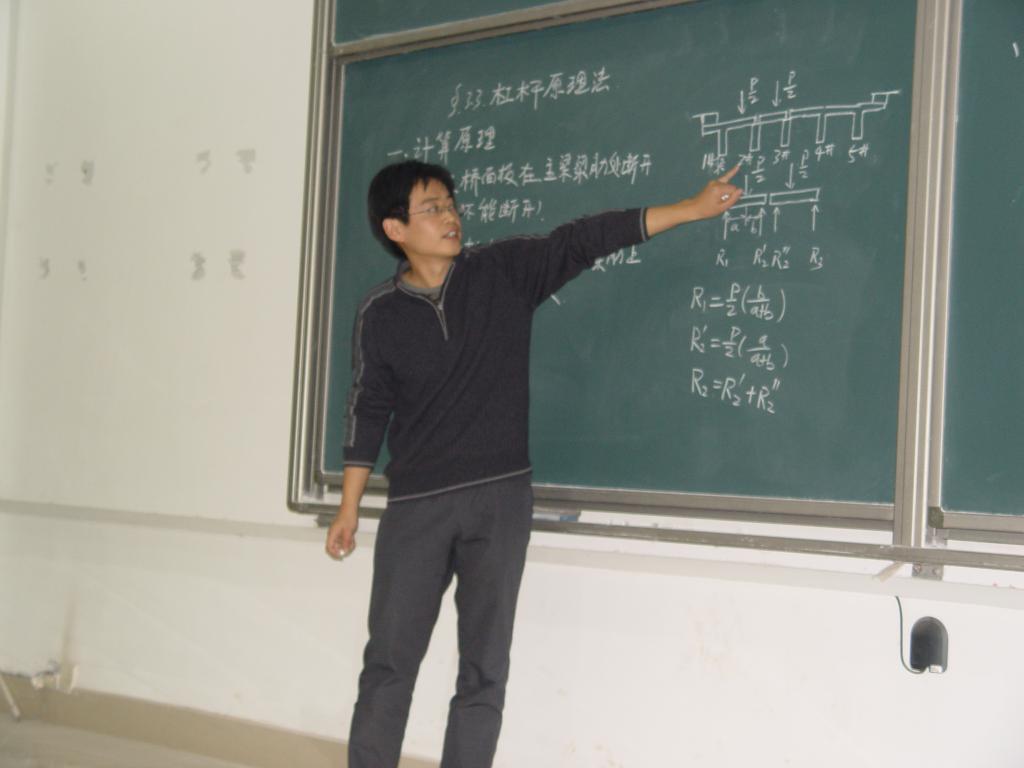 §3.3.杠杆原理法
一.计算原理
桥面板在主梁梁肋处断开
断开)
P/2 P/2
1# 2# 3# 4# 5#
P/2 P/2
a b
R₁ R₂' R₂'' R₃
R₁=P/2(b/a+b)
R₂'=P/2(a/a+b)
R₂=R₂'+R₂''